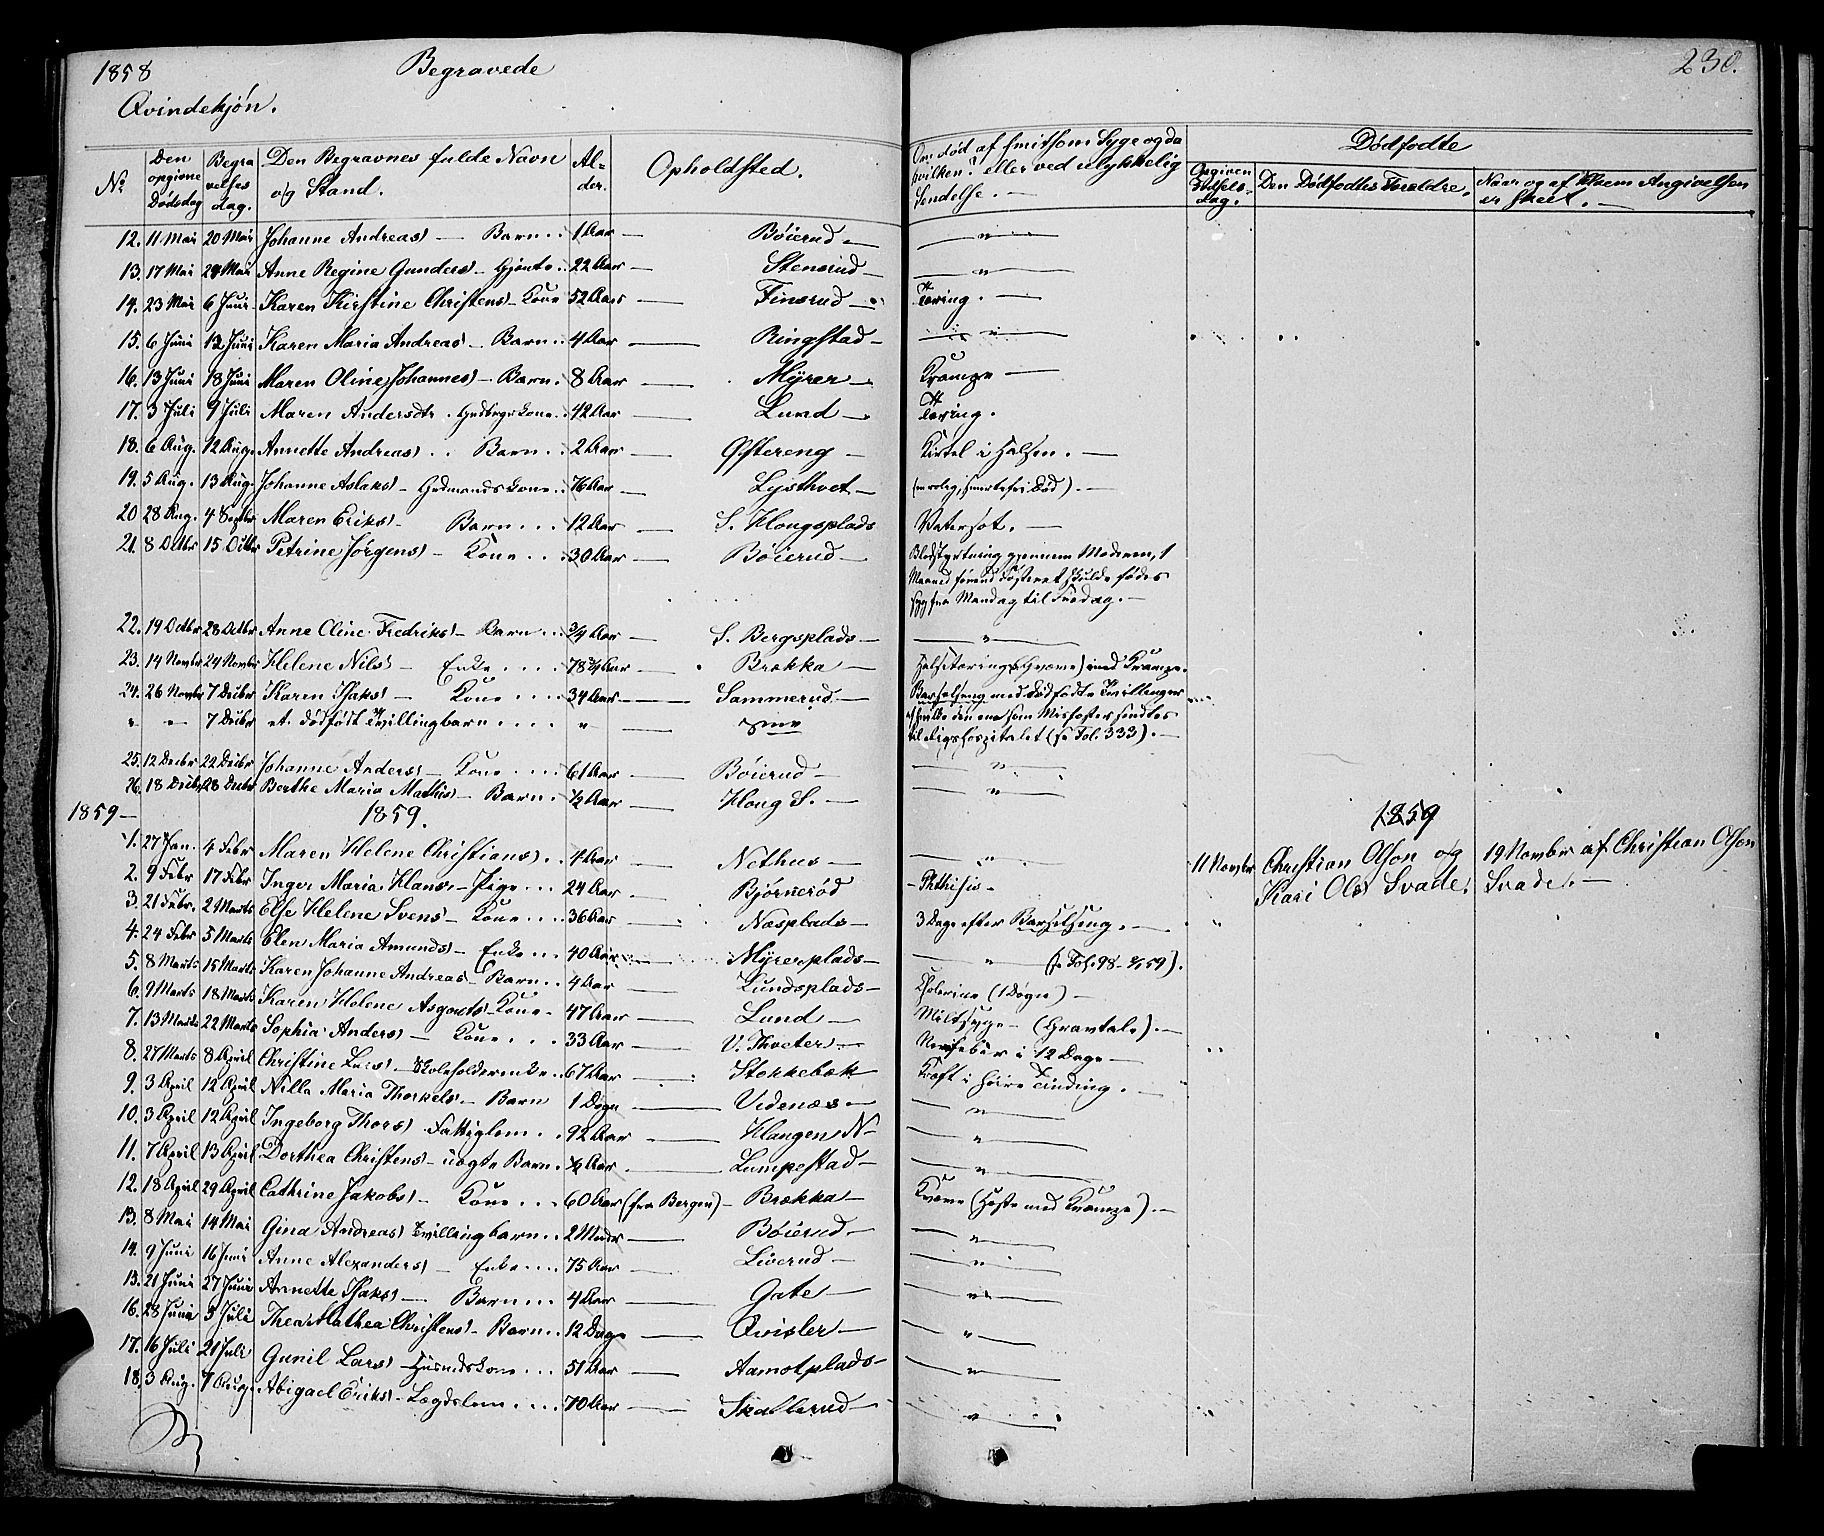 1858 Begravede 230.
Qvindekjøn.
No Den opgivne Dødsdag Begravelses dag. Den Begravnes fulde Navn og Stand. Alder. Opholdsted. Om død af smitsom Syge og da hvilken? eller ved ulykkelig Hendelse. — Dødfødte
Opgiven Fødselsdag. Den Dødfødtes Forældre. Naar og af Hvem Angivelsen er skeet. —
12. 11 Mai 20 Mai Johanne Andreas) — Barn .. 1 Aar — Böierud — "
13. 17 Mai 24 Mai Anne Regine Gunders — Gjente .. 22 Aar — Stensrud — "
14. 23 Mai 6 Juni Karen Kirstine Christens — Kone 52 Aar — Finsrud — Tæring. —
15. 6 Juni 12 Juni Karen Maria Andreas) — Barn .. 4 Aar — Ringstad — "
16. 13 Juni 18 Juni Maren Oline Johannes) — Barn . 8 Aar — Myrer — Krampe —
17. 3 Juli 9 Juli Maren Andersdtr . kone .. 42 Aar — Lund — Tæring.
18. 6 Aug. 12 Aug. Annette Andreas) .. Barn .. 2 Aar — Østereng — Kirtel i Halsen. —
19. 5 Aug. 13 Aug. Johanne Aslaks) — Gudmands kone .. 76 Aar — Lysthvet — (en rolig, smertefri Död). —
20 28 Aug. 4 Septbr Maren Eriks) — Barn ... 12 Aar — S. Hougsplads Vatersot. —
21. 8 Octbr 15 Octbr Petrine Jørgens) — Kone ... 30 Aar — Böierud — Blodstyrtning gjennem Moderen, 1
Maaned förend Fosteret skulde födes
syg fra Mandag til Fredag. —
22. 19 Octbr 28 Octbr Anne Oline Fredriks) — Barn .. 3/4 Aar — S. Bergsplads — "
23. 14 Novbr 24 Novbr Helene Nils) — Enke .... 78 3/4 Aar — Brækka — Halsetæring (Kværne) med Krampe.
24. 26 Novbr 7 Decbr Karen Isaks) — Kone .... 34 Aar — Sammerud — Barselseng med dödfödte Tvillinger
" " 7 Decbr et dödfödt Tvillingbarn .... " — af hvilke den ene som Misfoster sendtes
til Rigshospitalet (se Fol. 333). —
25. 12 Decbr 22 Decbr Johanne Anders) — Kone .... 61 Aar — Böierud — "
26. 18 Decbr 28 Decbr Berthe Maria Mathis) — Barn . 1/2 Aar — Houg S. — "
1859 — 1859. 1859
1. 27 Jan. 4 Febr Maren Helene Christians) . 4 Aar — Nethus — " 11 Novbr Christian Olson og 19 Novbr af Christian Olson
2. 9 Febr 17 Febr Inger Maria Hans) — Pige ... 24 Aar — Bjørnerød — Phthisis — Kari Ols) Svade. Svade. —
3. 21 Febr. 2 Marts Else Helene Svens) — Kone ... 36 Aar — Næsplads — 3 Dage efter Barselseng. —
4. 24 Febr 5 Marts Elen Maria Amunds) — Enke ... 40 Aar — Myrerplads — " (se Fol. 98 - 59).
5. 8 Marts 15 Marts Karen Johanne Andreas — Barn .. 4 Aar — Lundsplads — Cholerine (1 Døgn) —
6. 9 Marts 18 Marts Karen Helene Asgouts) Kone . 47 Aar — Lund — Miltsyge — (Gravtale). —
7. 13 Marts 22 Marts Sophia Anders) — Kone ... 33 Aar — V. Thveter — i 12 Dage —
8. 27 Marts 8 April Christine Lars) — Skoleholderenke .. 67 Aar — Stokkebæk Kræft i höire Tinding. —
9. 3 April 12 April Nilla Maria Thorkels. — Barn 1 Døgn — Videnæs — "
10. 3 April 12 April Ingeborg Thors) Fattiglem .. 92 Aar — Haugen N — "
11. 7 April 13 April Dorthea Christens — uægte Barn . 1/2 Aar — Lumpestad — "
12. 18 April 29 April Cathrine Jakobs) — Kone ... 60 Aar (fra Bergen) — Brækka — Kværne (Hoste med Krampe). —
13. 8 Mai 14 Mai Gina Andreas) Tvillingbarn .. 2 Mndr — Böierud — "
14. 9 Juni 16 Juni Anne Alexanders) — Enke .... 75 Aar — Liverud — "
15. 21 Juni 27 Juni Annette Isaks) — Barn ... 4 Aar — Gate — "
16. 28 Juni 5 Juli Thea Mathea Christens) — Barn .. 12 Dage — Qvisler — "
17. 16 Juli 21 Juli Gunil Lars) Husmdskone ... 51 Aar — Aamotplads — "
18. 3 Aug. 7 Aug. Abigael Eriks) — Lægdslem .... 70 Aar — Skallerud — "